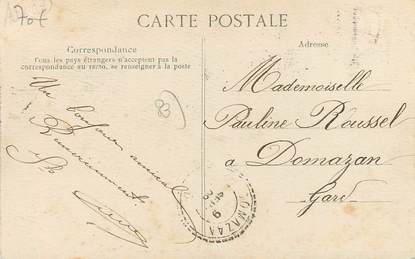 70€
CARTE POSTALE
Correspondance
Tous les pays étrangers n'acceptent pas la
correspondance au recto, se renseigner à la poste
Adresse
Un bonjour amical
83
Mademoiselle
Pauline Roussel
a Domazan
Gard
DOMAZAN
9